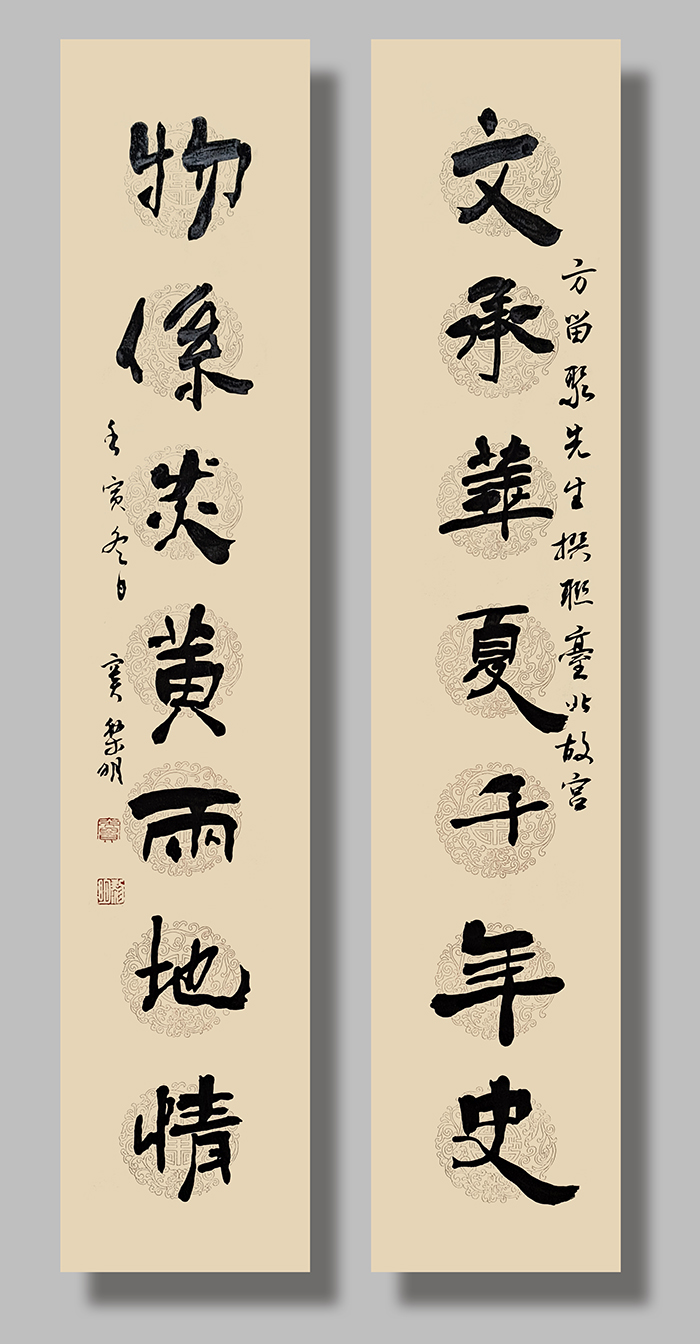 文承華夏千年史
方留聚先生撰聯臺北故宮
物係炎黃兩地情
壬寅冬月
竇黎明